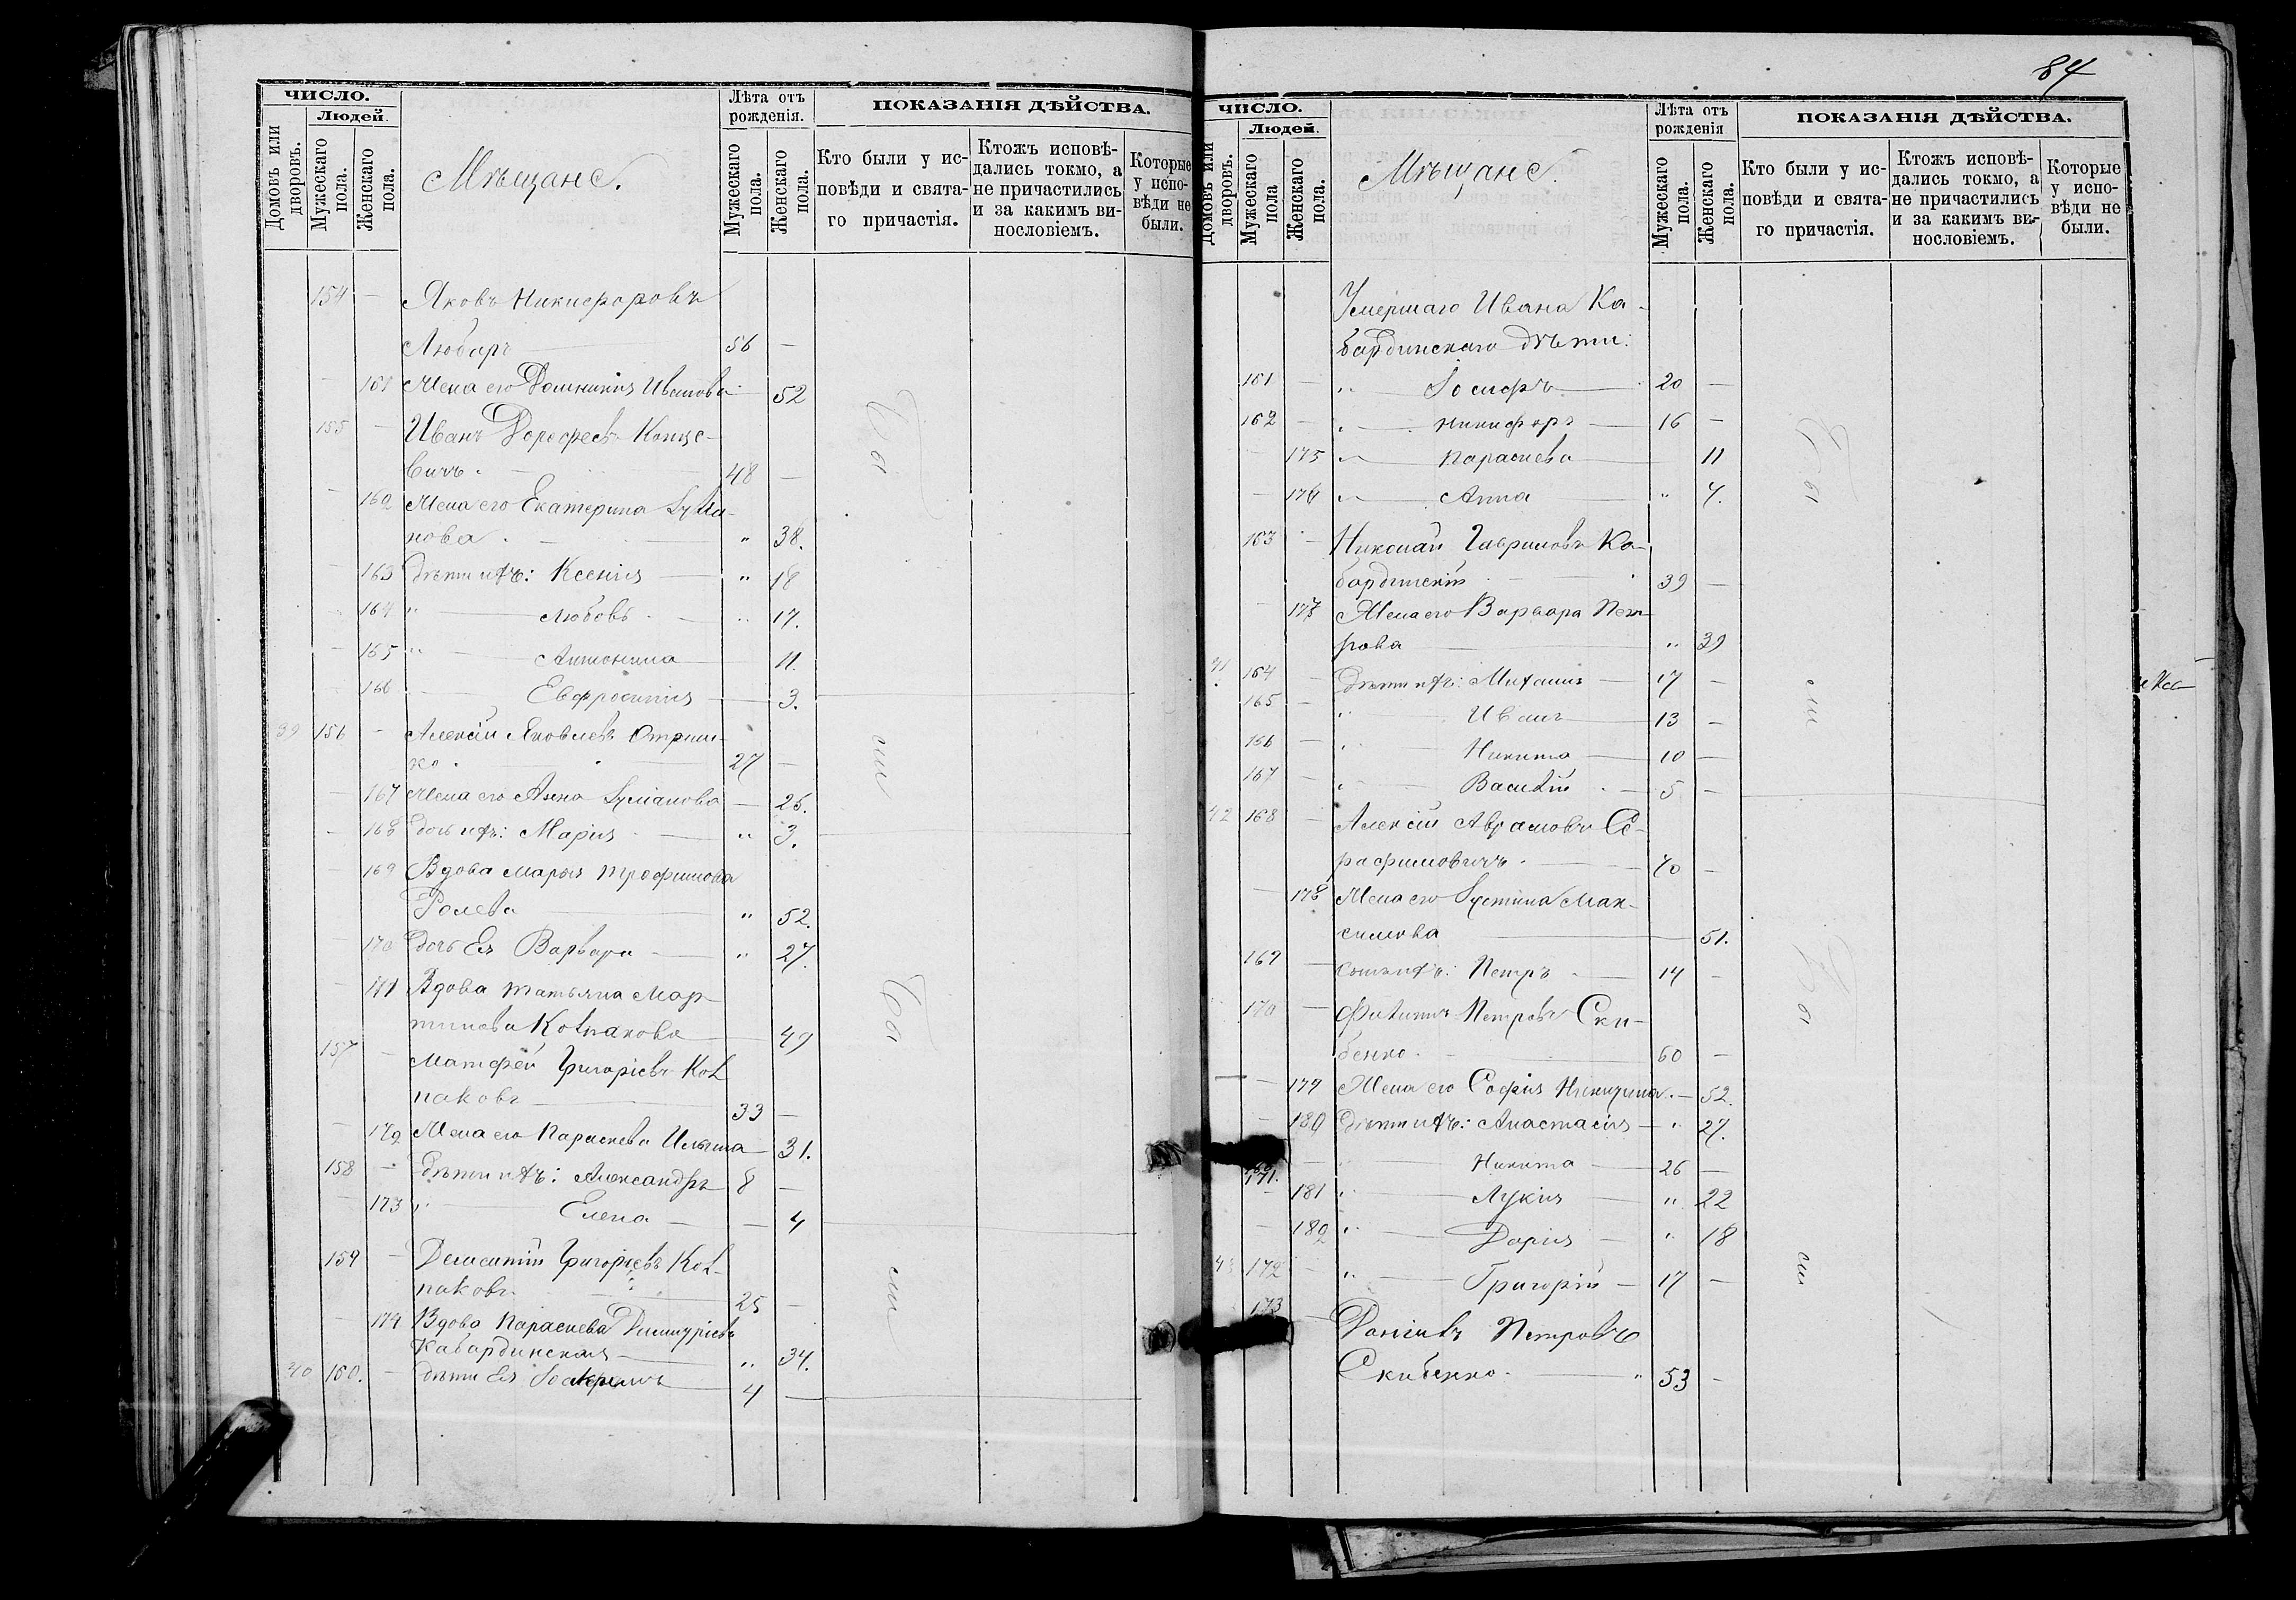 84
ЧИСЛО.
Людей.
Домовъ или дворовъ.
Мужескаго пола.
Женскаго пола.
Мѣщане.
Лѣта отъ рожденія.
Мужескаго пола.
Женскаго пола.
ПОКАЗАНІЯ ДѢЙСТВА.
Кто были у ис-
повѣди и свята-
го причастія.
Ктожъ исповѣ-
дались токмо, а
не причастились
и за какимъ ви-
нословіемъ.
Которые
у испо-
вѣди не
были.
154 — Яковъ Никифоровъ
Любаръ 56 —
161 Жена его Домникія Иванова 52
155 — Иванъ Дорофеевъ Конце-
вичъ. 48 —
162 Жена его Екатерина Іулiа-
нова. " 38.
163 Дѣти ихъ: Ксенія " 18
164 " Любовь " 17.
165 " Антонина 11.
166 Евфросинія 3.
39 156 — Алексій Яковлевъ Отриш-
ко. 27 —
167 Жена его Анна Іуліанова — 25.
168 дочь ихъ: Марія " 3.
169 Вдова Марья Трофимова
Ролева " 52.
170 дочь Ея Варвара " 27.
171 Вдова Татьяна Мар-
тинова Колпакова 49
157 — Матфей Григоріевъ Кол
паковъ 33 —
172 Жена его Параскева Ильина 31.
158 — Дѣти ихъ: Александръ 8 —
173 " Елена — 4
159 — Дементій Григоріевъ Кол-
паковъ. 25 —
174 Вдова Параскева Димитріева
Кабардинская " 34.
40 160. — дѣти Ея 4 —
Бы
ли
Бы
ли
ЧИСЛО.
Людей.
Домовъ или дворовъ.
Мужескаго пола
Женскаго пола.
Мѣщане.
Лѣта отъ рожденія
Мужескаго пола.
Женскаго пола.
ПОКАЗАНІЯ ДѢЙСТВА.
Кто были у ис-
повѣди и свята-
го причастія.
Ктожъ исповѣ-
дались токмо, а
не причастились
и за какимъ ви-
нословіемъ.
Которые
у испо-
вѣди не
были.
Умершаго Ивана Ка-
бардинскаго дѣти:
161 — " Іосифъ 20 —
162 — " Никифоръ 16 —
175 " Параскева 11
176 " Анна " 7.
163 — Николай Гавриловъ Ка-
бардинскій 39 —
177 Жена его Варвара Пет-
рова " 39
41 164 — Дѣти ихъ: Михаилъ 17 —
165 — " Иванъ 13 —
166 — " Никита 10 —
167 — " Василій 5 —
42 168 — Алексій Аврамовъ Се-
рафимовичъ. 40 —
178 Жена его Іустина Мак-
симова 51.
169 — сынъ ихъ: Петръ 14 —
170 — Филиппъ Петровъ Ски-
бенко. 60 —
179 Жена его Софія Никитина. — 52.
180 Дѣти ихъ: Анастасія — " 27.
171. — " Никита 26 —
181 " Лукія " 22
182 " Дарія " 18
43 172 — " Григорій — 17 —
173 — Даніилъ Петровъ
Скибенко. " 53 —
Бы
ли
Бы
ли